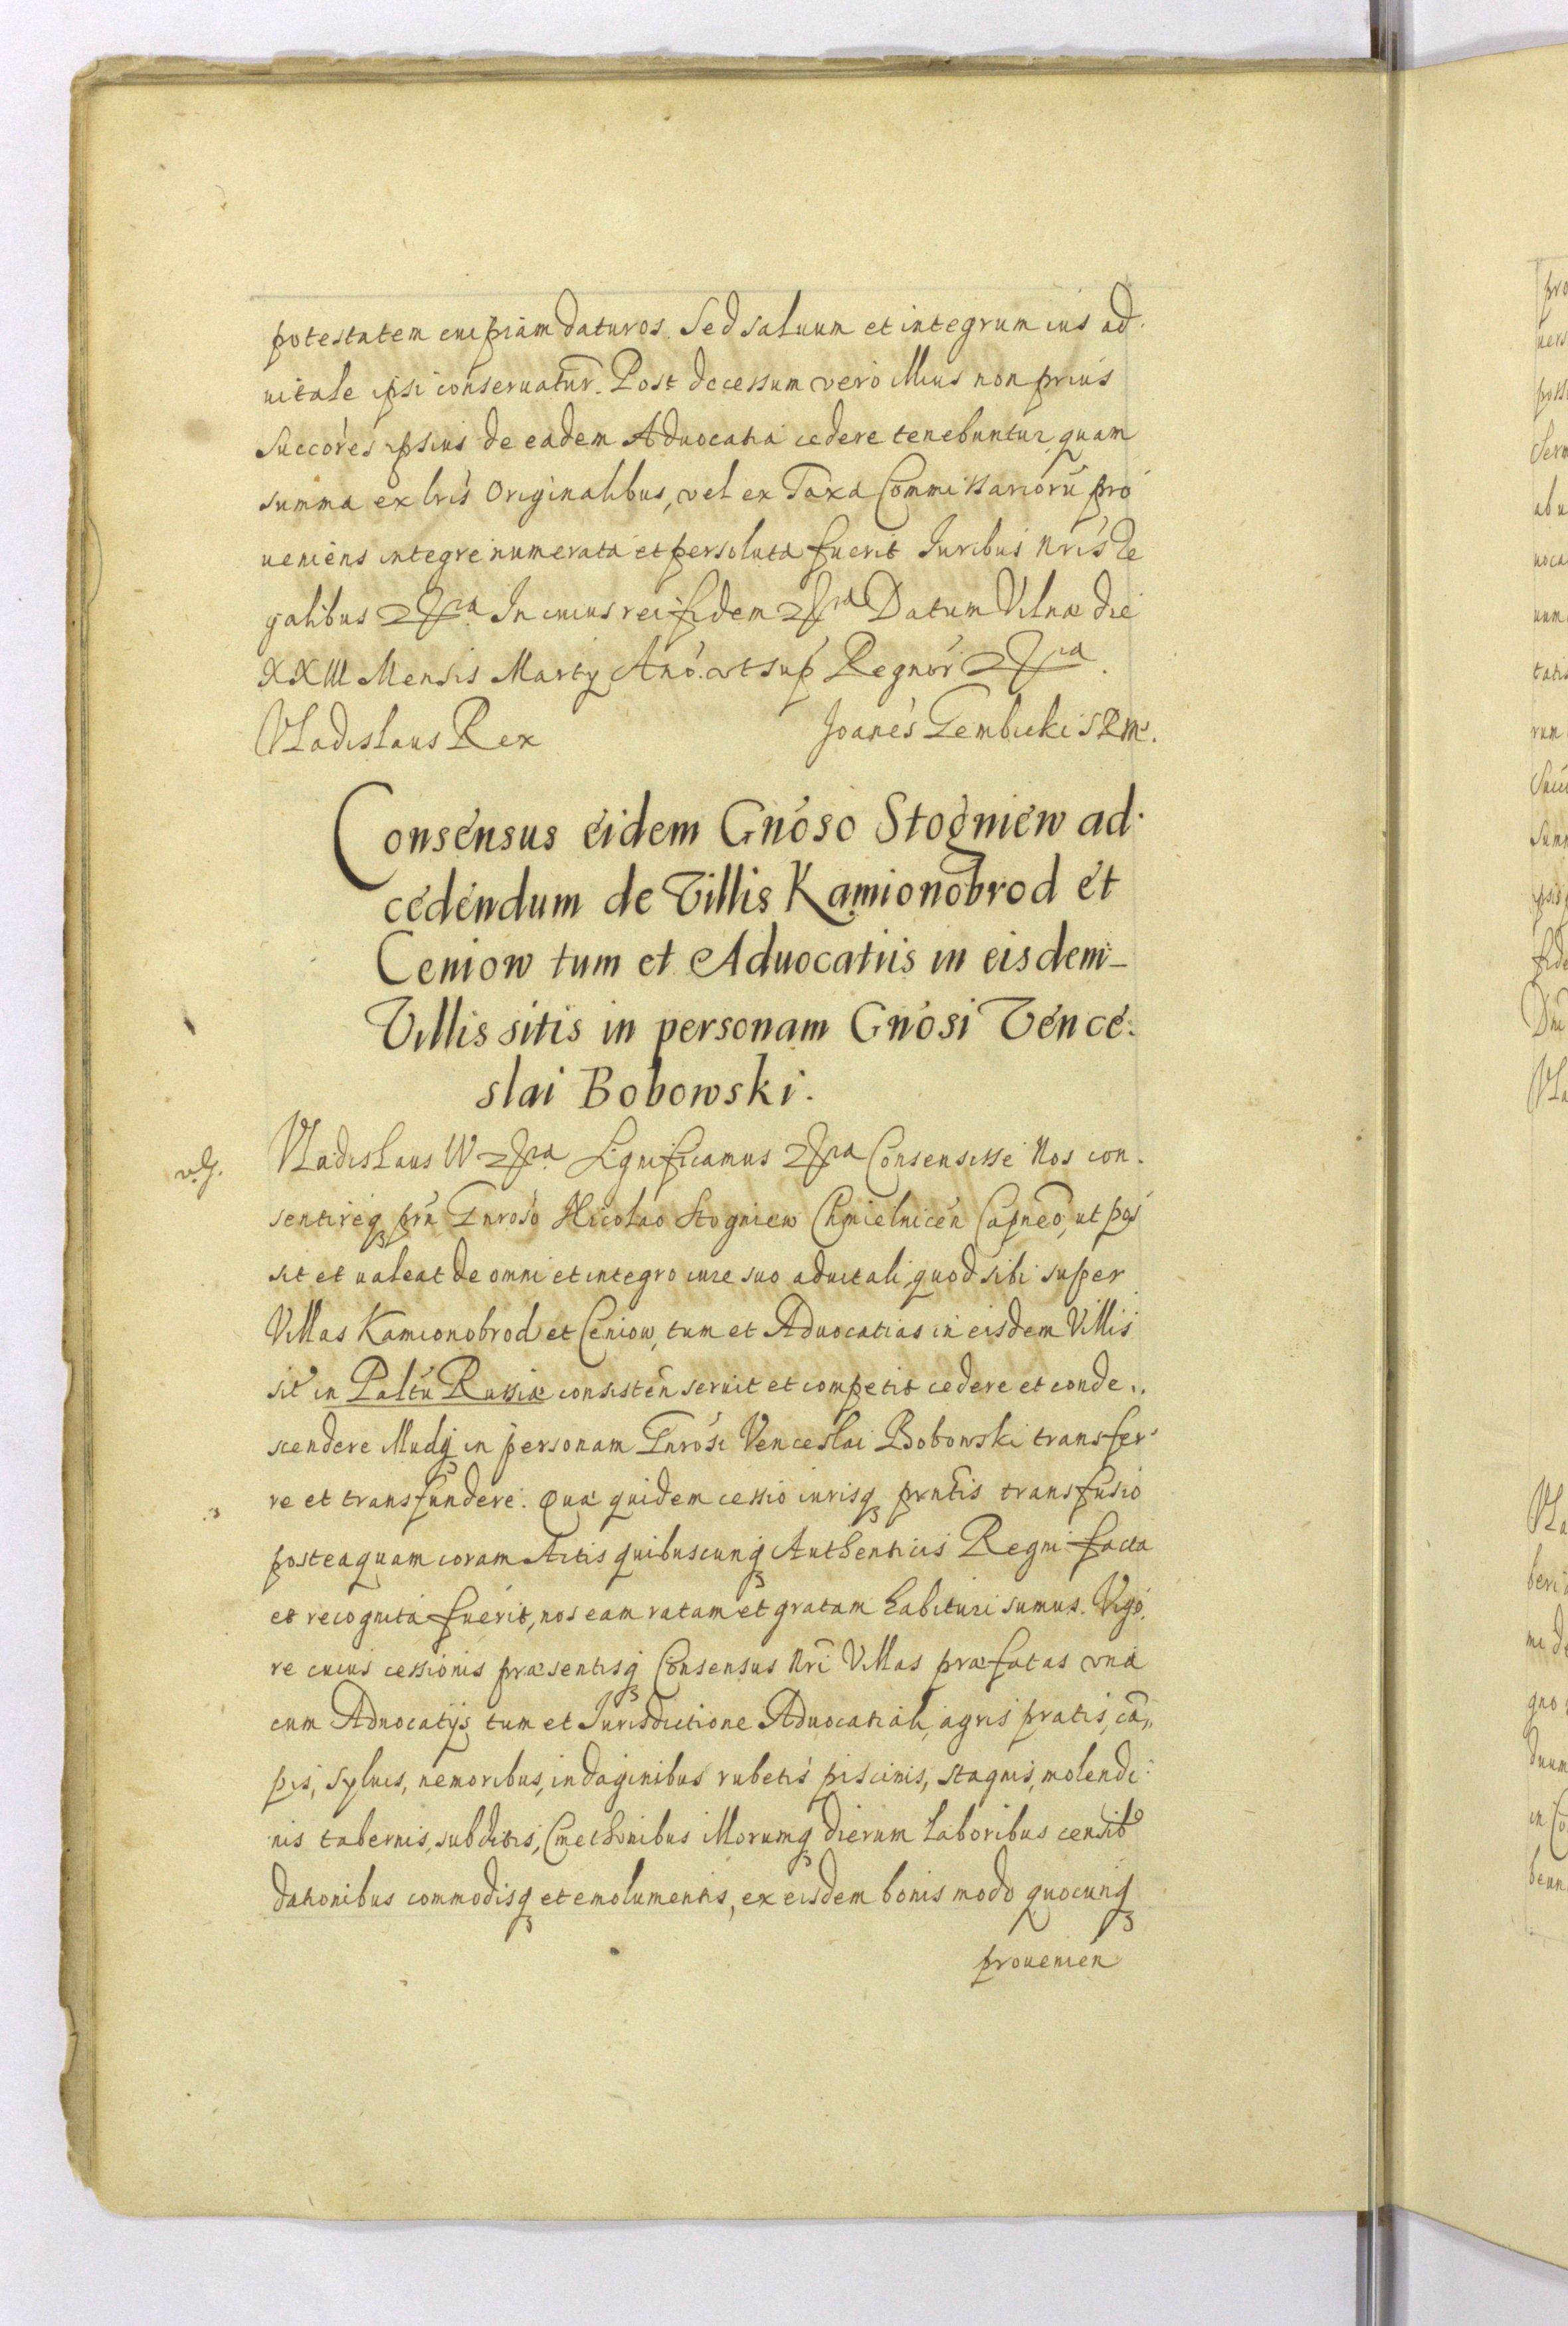 potestatem cuipiam daturos. Sed saluum et integrum ius ad
uitale ipsi conseruatur. Post decessum vero illius non prius
Succores ipsius de eadem Aduocatia cedere tenebuntur, quam
summa ex lris Originalibus, vel ex Taxa Commissariorũ pro
ueniens integre numerata et persoluta fuerit Iuribus nris Re
galibus &ra In cuius rei fidem &ra Datum Vilnæ die
XXIII Mensis Martij Ano. vt sup Regnor &ra.
Vladislaus Rex Joanes Gembicki SRMs.
Consensus eidem Gnoso Stogniew ad
cedendum de Villis Kamionobrod et
Ceniow tum et Aduocatiis in eisdem
Villis sitis in personam Gnosi Vence.
slai Bobowski.
v.g. Vladislaus IV &ra Significamus &ra Consensisse Nos con.
sentireq prñ Gnroso Nicolao Stogniew Chmielnicen Capneo, ut pos
sit et valeat de omni et integro iure suo aduitali, quod sibi super
Villas Kamionobrod et Ceniow, tum et Aduocatias in eisdem Villis
sit in Paltu Russiæ consisten seruit et competit cedere et conde..
scendere illudq in personam Gnrosi Venceslai Bobowski transfer
re et transfundere. Quæ quidem cessio iurisq prntis transfusio
posteaquam coram Actis quibuscunq Authenticis Regni facta
et recognita fuerit, nos eam ratam et gratam habituri sumus. Vigo.
re cuius cessionis præsentisq Consensus nri Villas præfatas vna
cum Aduocatijs tum et Jurisdictione Aduocatiali, agris pratis, cã„
pis, syluis, nemoribus, indaginibus rubetis piscinis, stagnis, molendi
nis tabernis, subditis, Cmethonibus illorumq dierum laboribus censib9
dationibus commodisq et emolumentis, ex eisdem bonis modo quocunq
prouenien